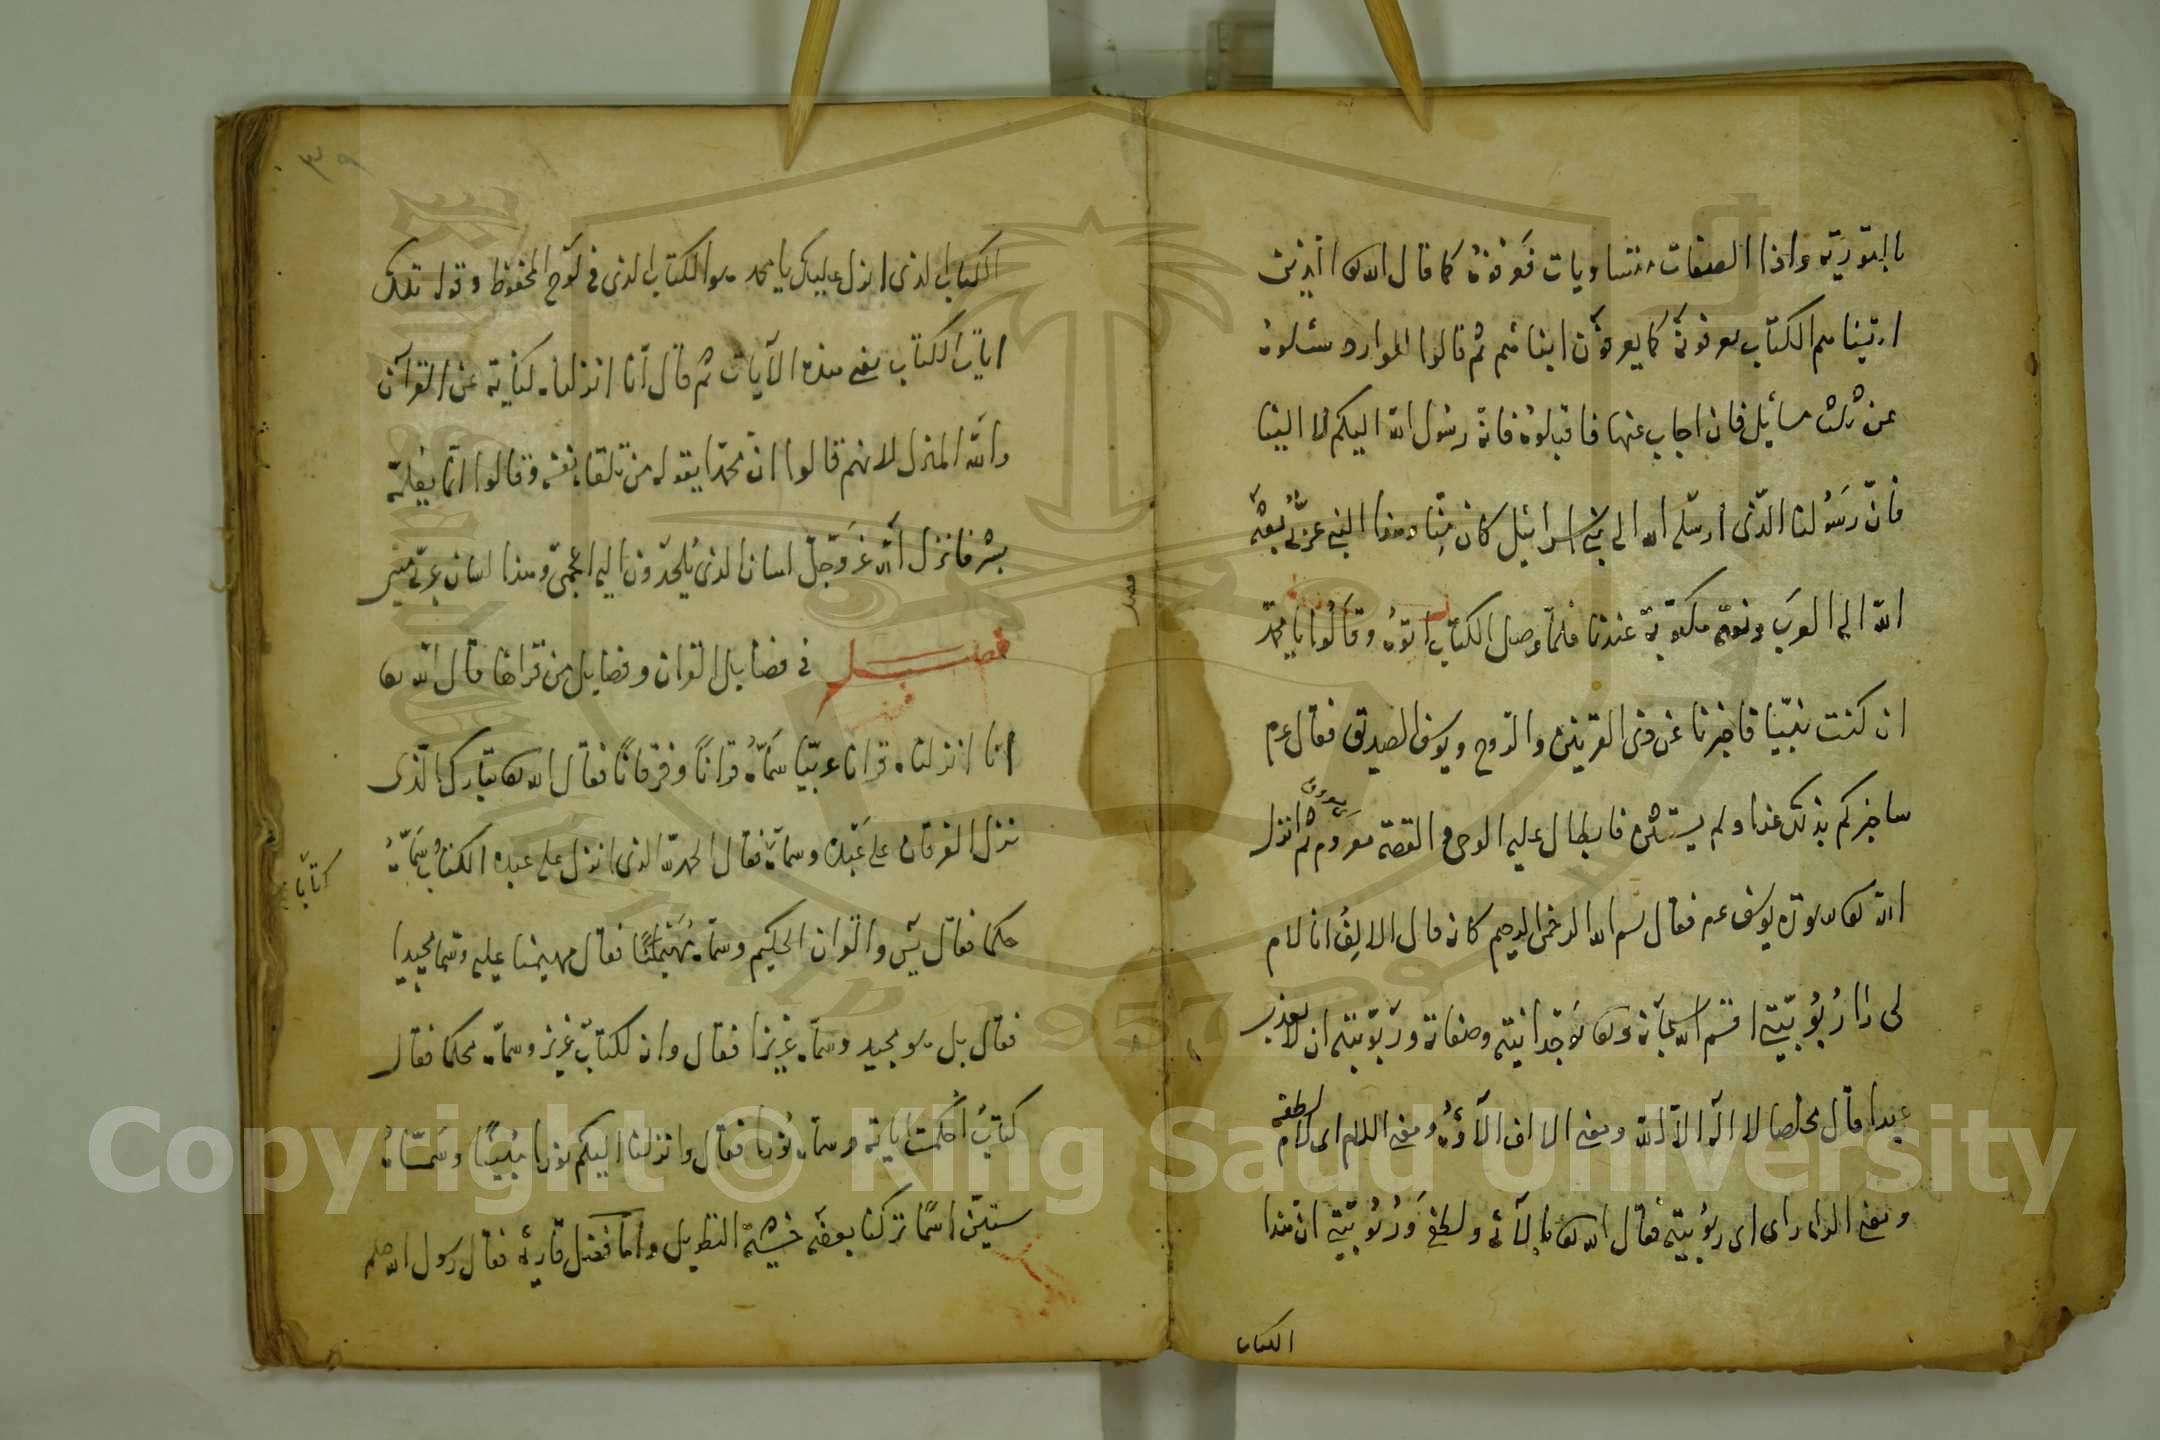 بالتورية واذا الصفات متساويات فعرفوه كما قال الله تعا الذين
اتيناهم الكتاب يعرفونه كما يعرفون ابنائهم ثم قالوا اسئلوه
عن ثلث مسائل فان اجاب عنها فاقبلوه فانه رسول الله اليكم لا الينا
فان رسولنا الذى ارسله الله الى بنى اسرائيل كان منا وهذا النبى عربى بعثه
الله الى العرب ونعته مكتوبة عندنا فلما وصل الكتاب اتوه وقالوا يا محمد
ان كنت نبيا فاخبرنا عن ذى القرنين والروح ويوسف الصديق فقال عم
ساخبركم بذلك غدا ولم يستثن فابطأ عليه الوحى و القصة معروفة ثم انزل
الله تعا سورة يوسف عم فقال بسم الله الرحمن الرحيم كانه قال الالف انا لام
لى را ربوبيتى اقسم الله سبحانه وتعا بوحدانيته وصفاته وربوبيته ان لا يعذب
عبدا قال مخلصا لا اله الا الله ومعنى الالف الآؤه ومعنى اللام اى لام لطفه
ومعنى الراء راى اى ربوبيته فقال الله تعا بالآئى ولطفى وربوبيتى ان هذا
الكتاب
٣٩
الكتاب الذى انزل عليك يا محمد هو الكتاب الذى فى لوح المحفوظ وقوله تلك
ايات الكتاب يعنى هذه الآيات ثم قال انا انزلناه كناية عن القرآن
والله المنزل لانهم قالوا ان محمدا يقوله من تلقاء نفسه وقالوا انما يعلمه
بشر فانزل الله عز وجل لسان الذى يلحدون اليه اعجمى وهذا لسان عربى مبين
فصل فى فضايل القران وفضايل من قراها قال الله تعا
انا انزلناه قرانا عربيا سماه قرانا وفرقانا فقال الله تعا تبارك الذى
نزل الفرقان على عبده وسماه فقال الحمد لله الذى انزل على عبده الكتاب سماه
كتابا
حكما فقال يس والقران الحكيم وسماه مهيمنا فقال مهيمنا عليه وسماه مجيدا
فقال بل هو مجيد وسماه عزيزا فقال وانه لكتاب عزيز وسماه محكما فقال
كتاب احكمت اياته وسماه نورا فقال وانزلنا اليكم نورا مبينا وسماه
ستين اسما تركنا بعضه خشية التطويل واما فضل قاريه فقال رسول الله صلعم
Copyright © King Saud University
1957